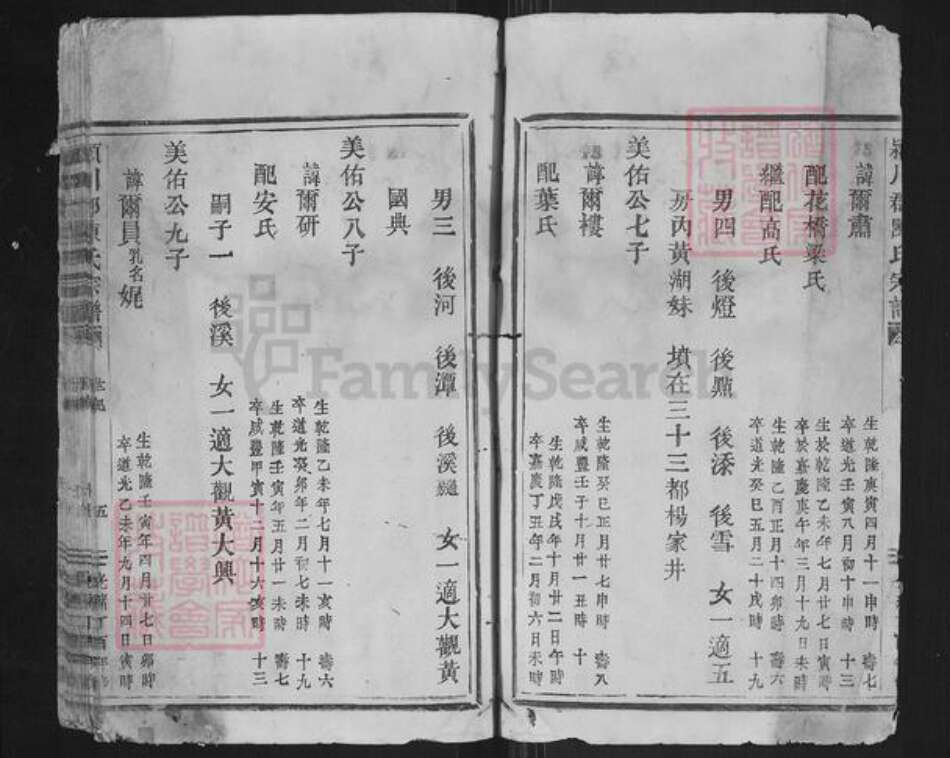 諱爾肅
生乾隆庚寅四月十一申時 壽七
卒道光壬寅八月初十申時 十三
配花橋梁氏
生於乾隆乙未年七月廿七日寅時
卒於嘉慶庚午年三月十九日未時
繼配高氏
生乾隆乙酉正月十四卯時 壽六
卒道光癸巳五月二十戌時 十九
男四 後燈 後鼎 後添 後雪 女一適五
房丙黃湖妹 墳在三十三都楊家井
美佑公七子
諱爾樓
生乾隆癸巳正月廿七申時 壽八
卒咸豐壬子十月廿一丑時 十
配葉氏
生乾隆戊戌年十月廿二日午時
卒嘉慶丁丑年二月初六日未時
男三 後河 後潭 後溪 女一適大觀黃
國典
美佑公八子
諱爾研
生乾隆乙未年七月十一亥時 壽六
卒道光癸卯年二月初七未時 十九
配安氏
生乾隆壬寅年五月廿一未時 壽七
卒咸豐甲寅十二月十六亥時 十三
嗣子一 後溪 女一適大觀黃大興
美佑公九子
諱爾員 乳名娓
生乾隆壬寅年四月廿七日卯時
卒道光乙未年九月十四日寅時
五
FamilySearch